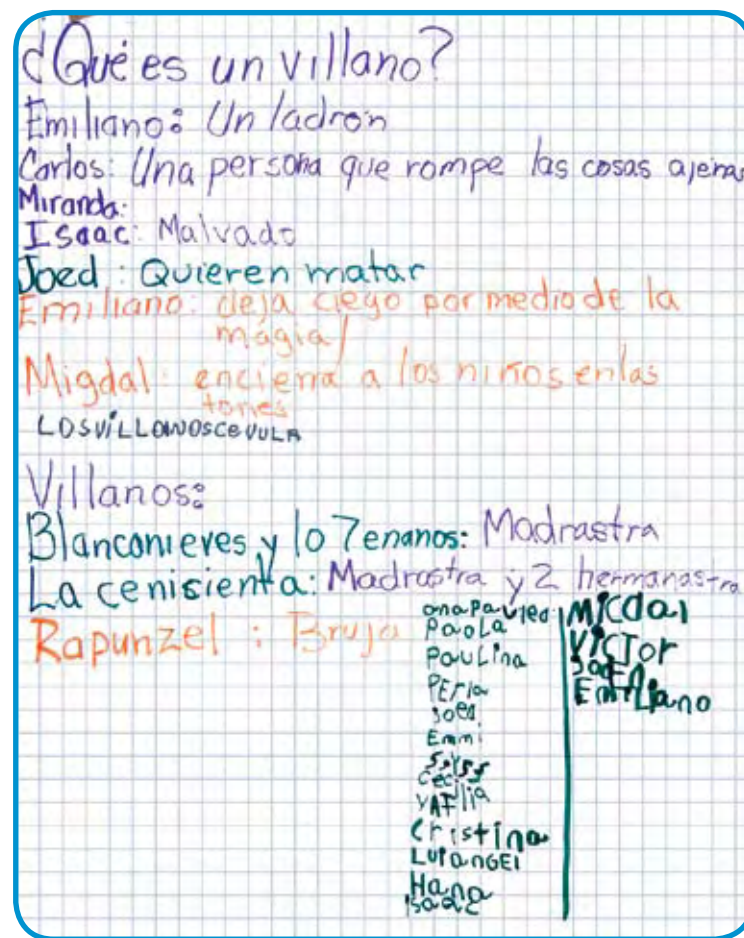 ¿Qué es un villano?
Emiliano: Un ladrón
Carlos: Una persona que rompe las cosas ajenas
Miranda:
Isaac: Malvado
Joed: Quieren matar
Emiliano: deja ciego por medio de la
mágia/
Migdal: encierra a los niños en las
torres
LOSViLLANOSCEVULA
Villanos:
Blancanieves y lo 7 enanos: Madrastra
La cenisienta: Madrastra y 2 hermanastra
Rapunzel: Bruja
Paola
Paulina
Perla
Joed
Emmi
Ceci
Cristina
LuianGEl
Hana
Isaac
Micdal
VicTor
Emiliano